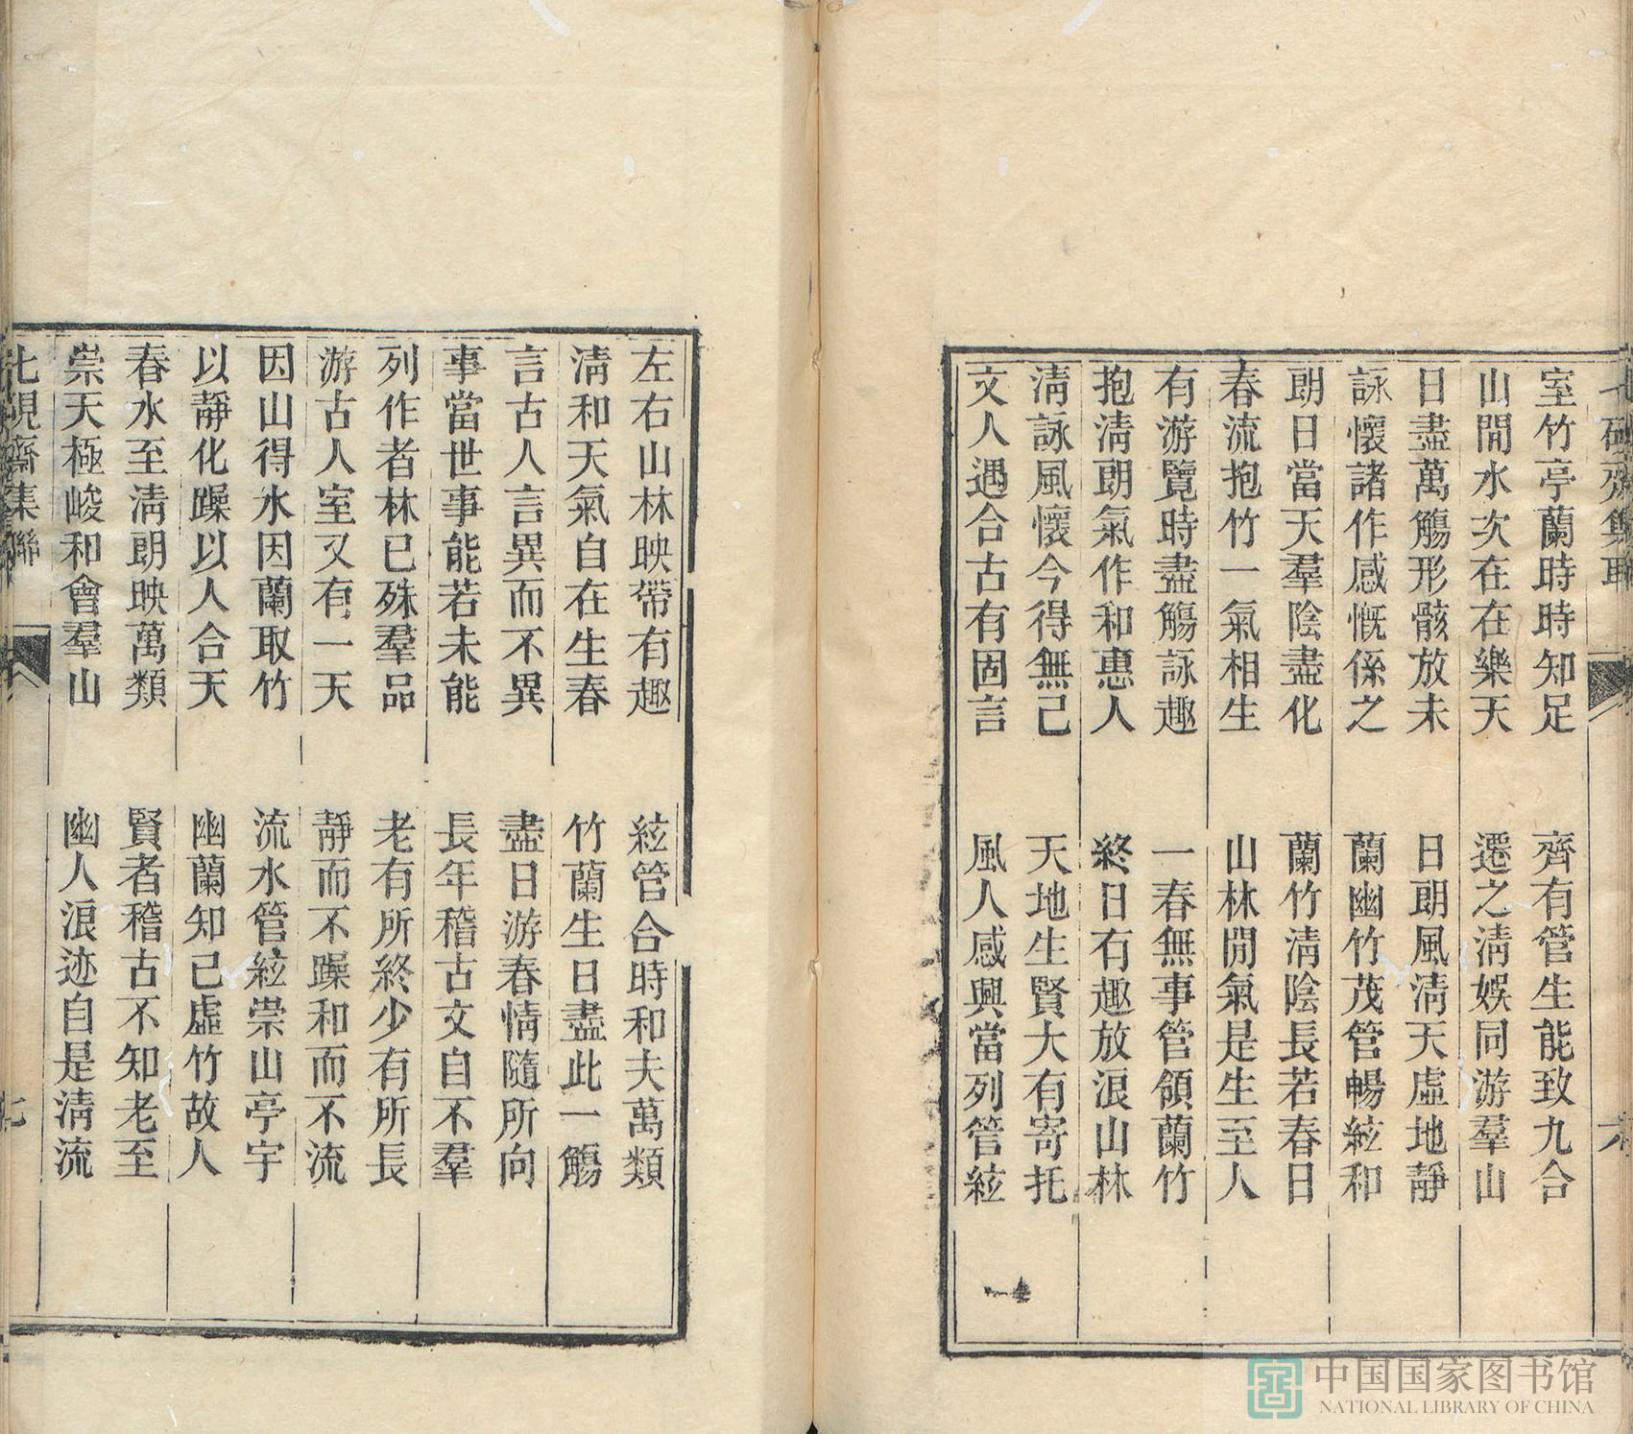 室竹亭蘭時時知足　齊有管生能致九合
山閒水次在在樂天　遷之清娛同游羣山
日盡萬觴形骸放未　日朗風清天虛地靜
詠懷諸作感慨係之　蘭幽竹茂管暢絃和
朗日當天羣陰盡化　蘭竹清陰長若春日
春流抱竹一氣相生　山林閒氣是生至人
有游覽時盡觴詠趣　一春無事管領蘭竹
抱清朗氣作和惠人　終日有趣放浪山林
清詠風懷今得無己　天地生賢大有寄托
文人遇合古有固言　風人感興當列管絃
六
左右山林映帶有趣　絃管合時和夫萬類
清和天氣自在生春　竹蘭生日盡此一觴
言古人言異而不異　盡日游春情隨所向
事當世事能若未能　長年稽古文自不羣
列作者林已殊羣品　老有所終少有所長
游古人室又有一天　靜而不躁和而不流
因山得水因蘭取竹　流水管絃崇山亭宇
以靜化躁以人合天　幽蘭知己虛竹故人
春水至清朗映萬類　賢者稽古不知老至
崇天極峻和會羣山　幽人浪迹自是清流
七硯齋集聯
七
中国国家图书馆
NATIONAL LIBRARY OF CHINA